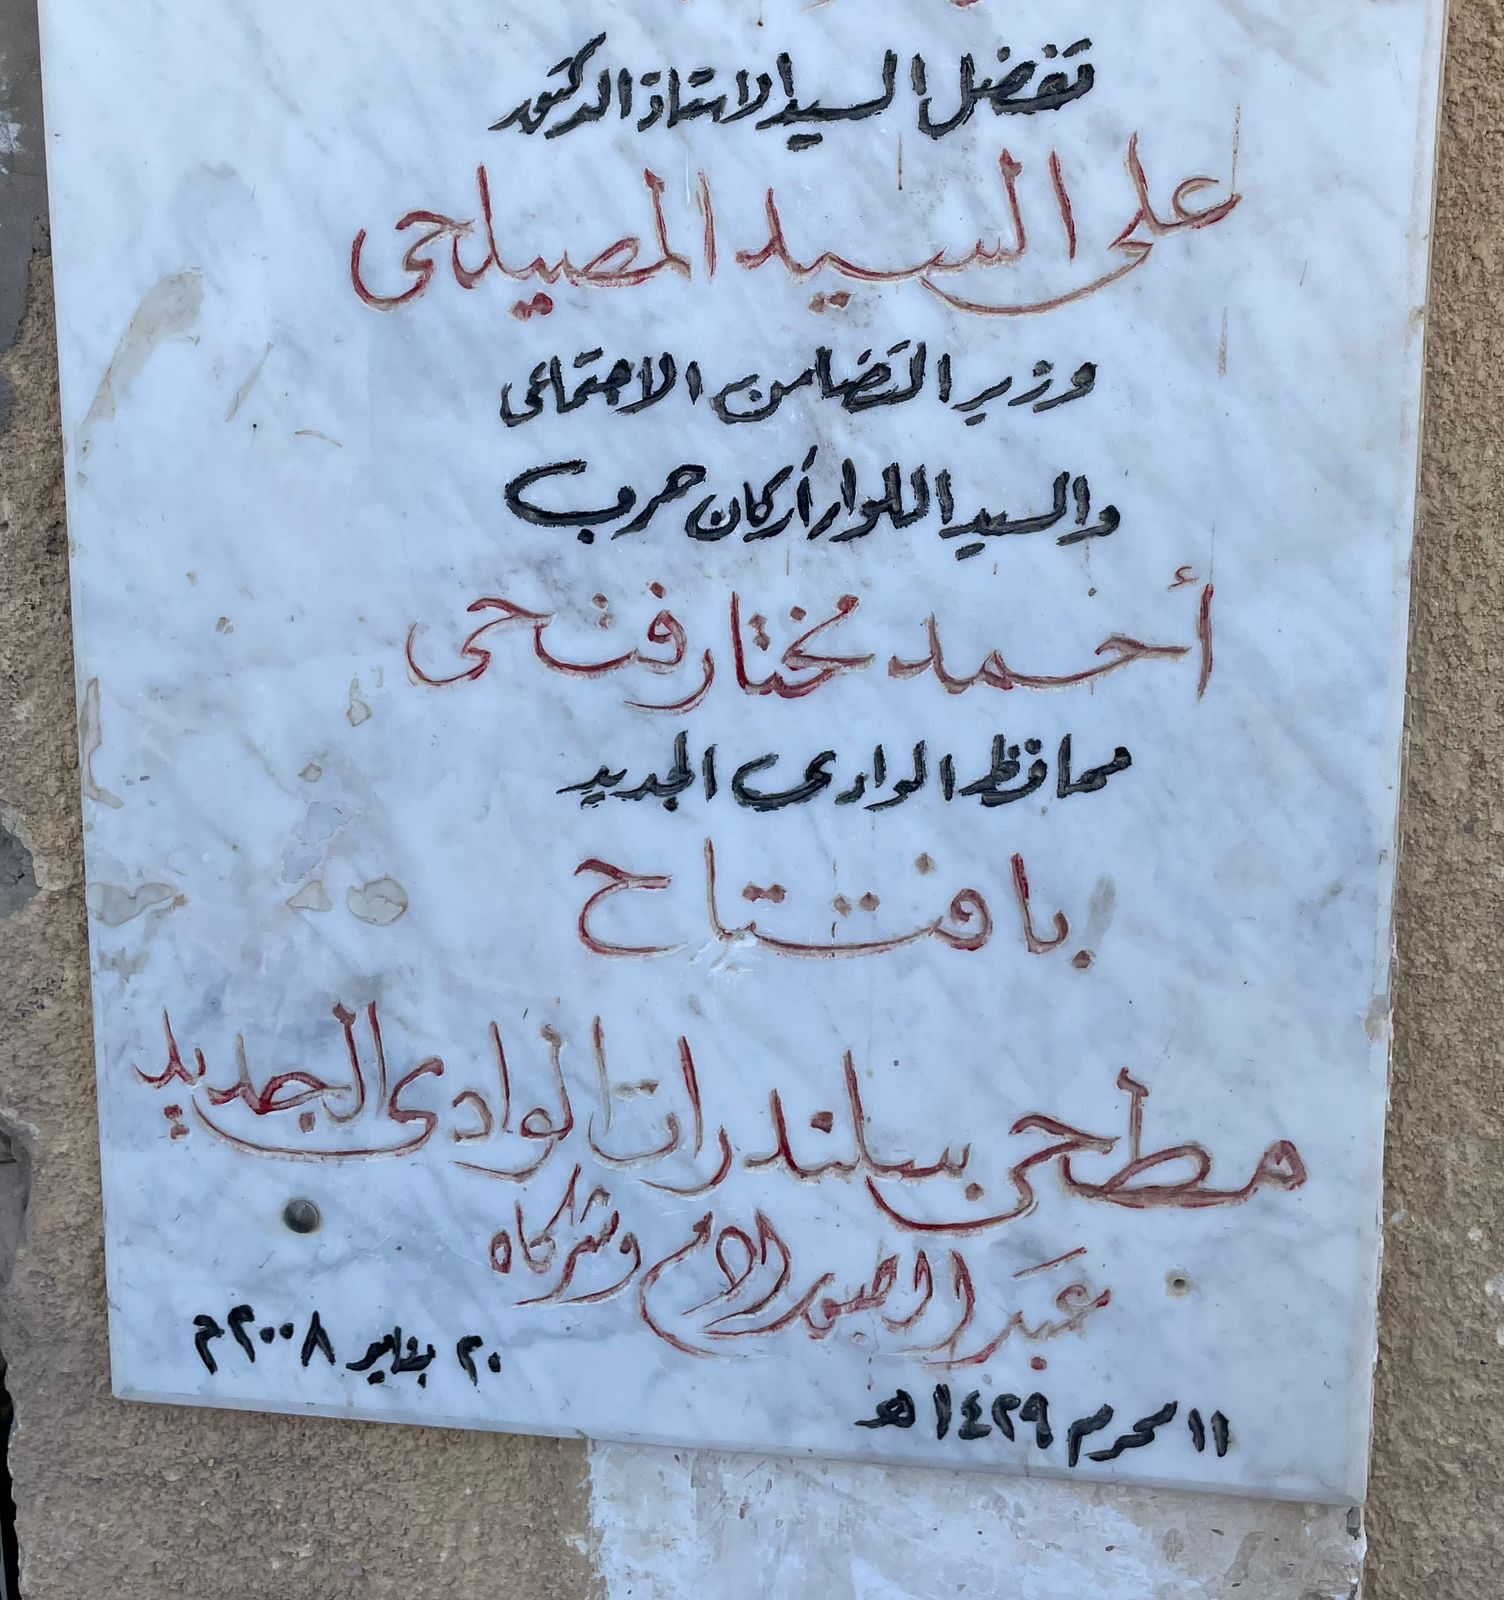 تفضل السيد الاستاذ الدكتور
على السيد المصيلحى
وزير التضامن الاجتماعى
والسيد اللوار أركان حرب
أحمد مختار فتحى
محافظ الوادى الجديد
بافتتاح
مطحن سلندرات الوادى الجديد
عبد الصبور الام وشركاه
١١ محرم ١٤٢٩ هـ
٢٠ يناير ٢٠٠٨ م